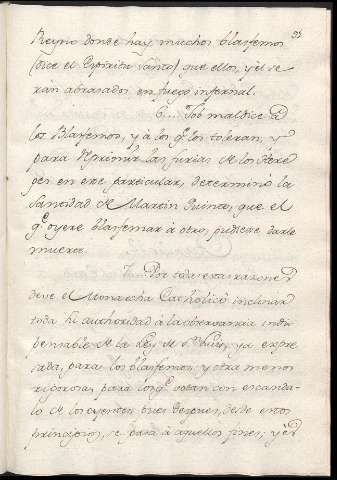 Reyno donde hay muchos blasfemos
(dice el Espiritu Santo) que ellos, y èl se
ràn abrasados en fuego infernal.
6... Job maldice â
los Blasfemos, y á los q.e los toleran, y
para reprimir las furias de los
en este particular, determinò la
Santidad de Martin Quinto, que el
q.e oyere blasfemar â otro, pudiese darle
muerte.
7... Por toda esta razones
deve el Monarcha Catholico inclinar
toda su authoridad â la observancia indis
pensable de la Ley de S.n Luis, ya expre
sada, para los blasfemos, y otra menos
rigorosa, para los q.e votan con escanda-
lo de los oyentes, pues despues, desde estos
principios, se pasa â aquellos fines; y